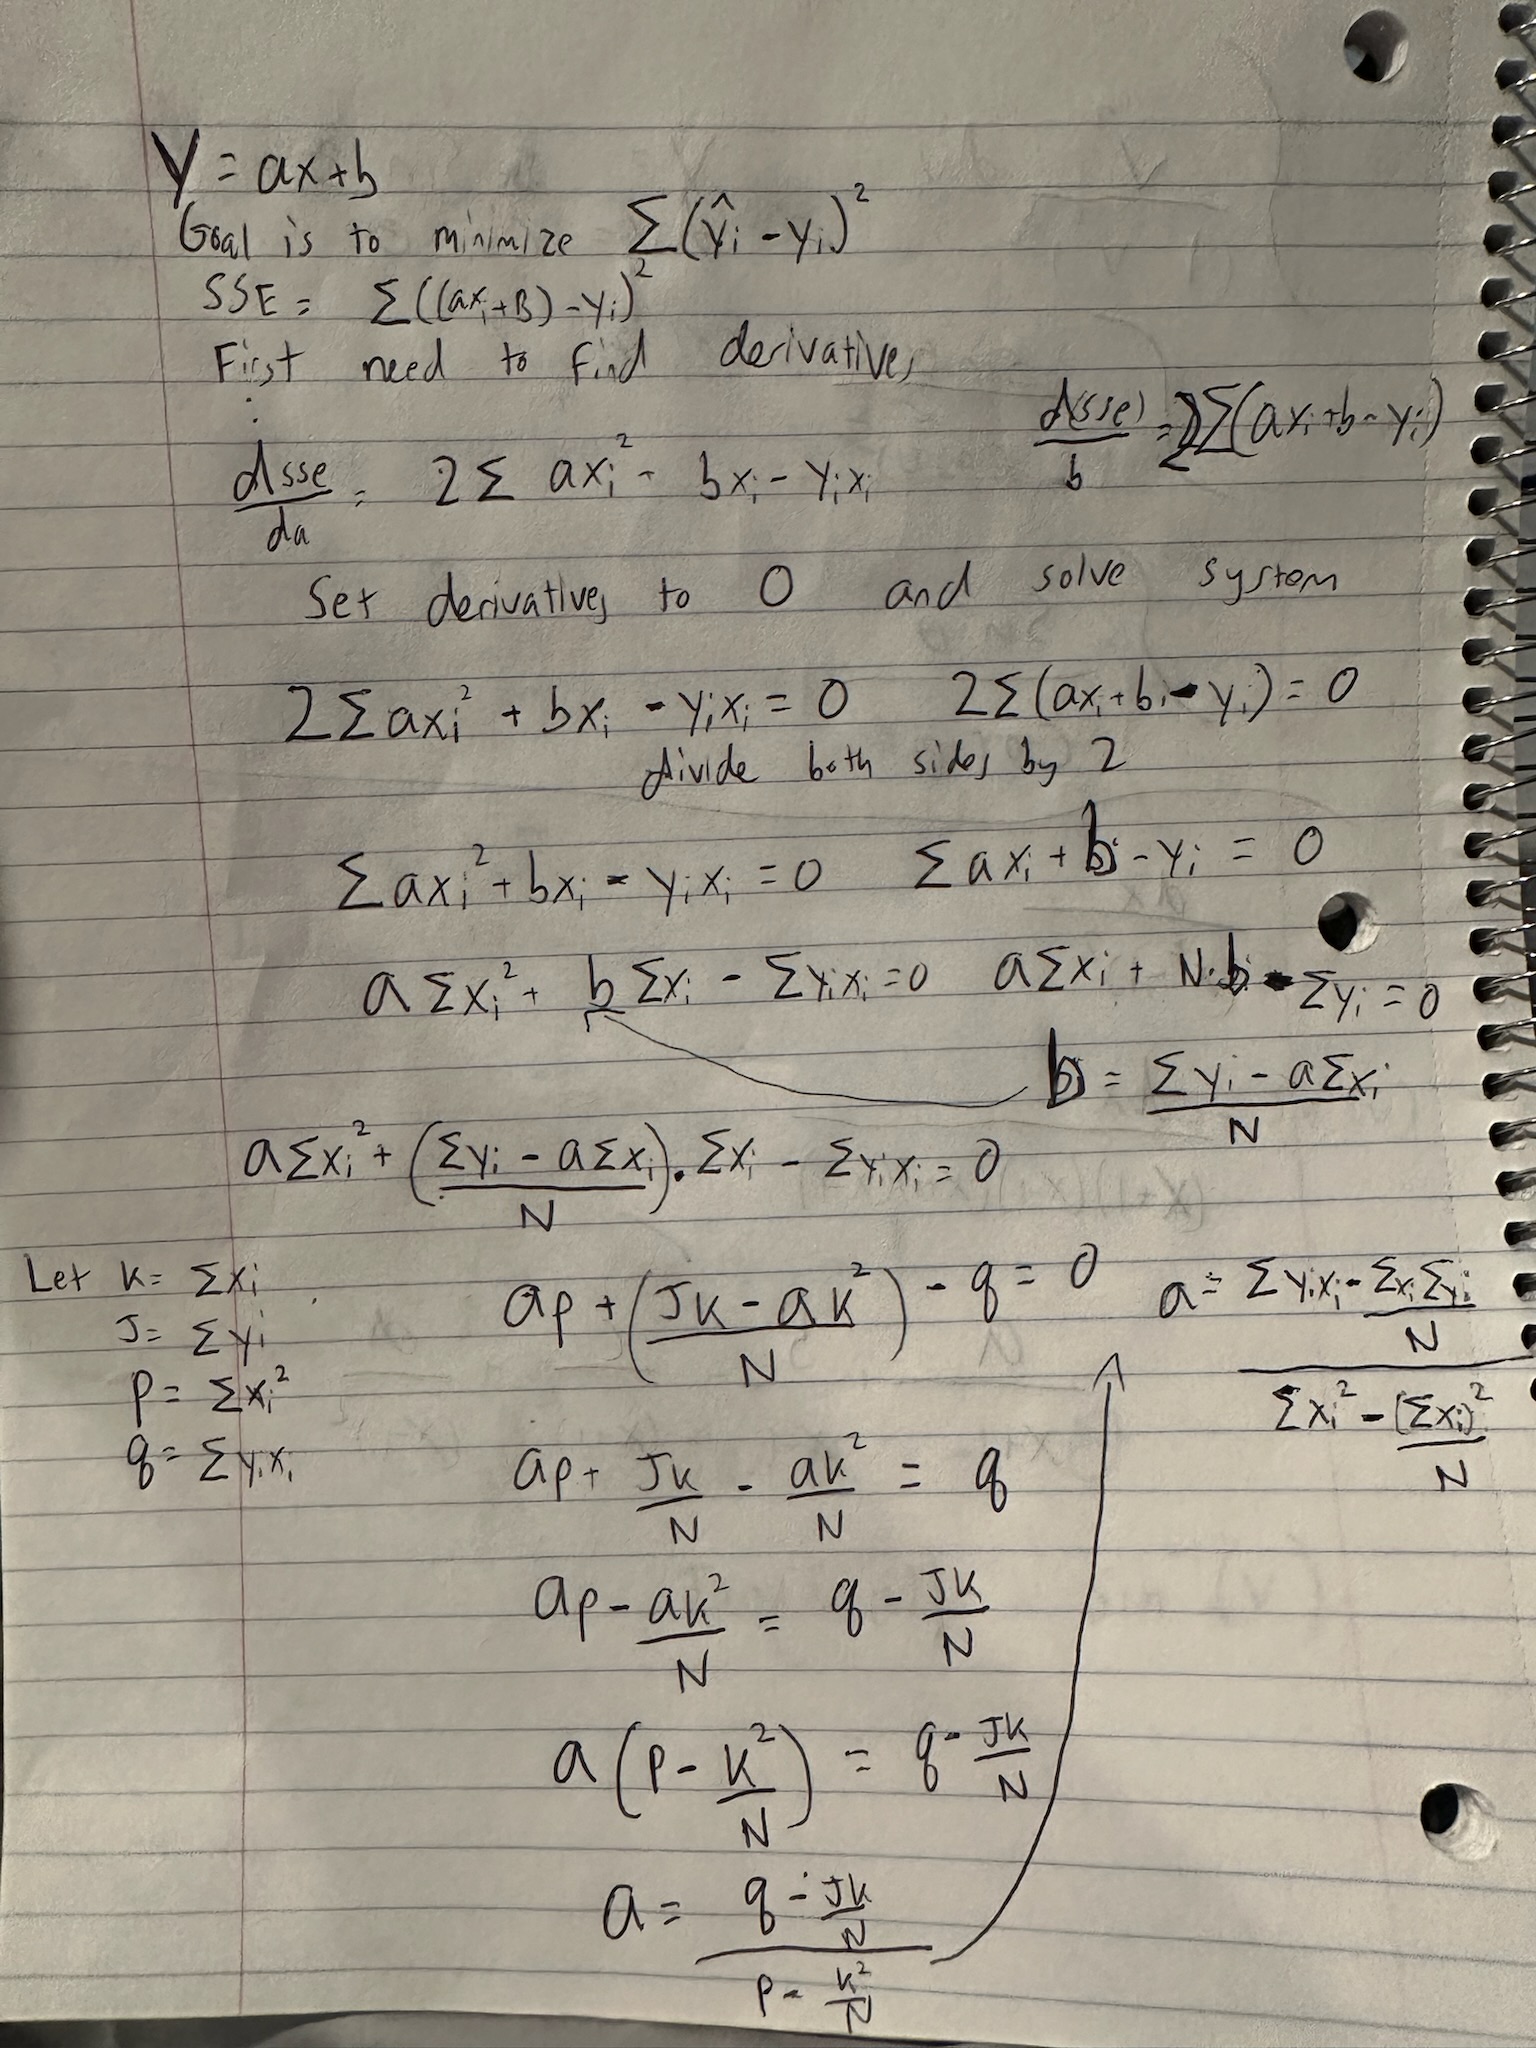 Y = ax+b
Goal is to minimize Σ(ŷi - yi)²
SSE = Σ((axi+B)-yi)²
First need to find derivatives
⋮
dsse/da = 2Σ axi² - bxi - yixi
d(sse)/b = 2Σ(axi+b-yi)
Set derivatives to 0 and solve system
2Σaxi² + bxi - yixi = 0 2Σ(axi+bi-yi) = 0
divide both sides by 2
Σaxi²+bxi - yixi = 0 Σaxi + b - yi = 0
aΣxi² + bΣxi - Σyixi = 0 aΣxi + N·b - Σyi = 0
b = (Σyi - aΣxi)/N
aΣxi² + ((Σyi - aΣxi)/N)·Σxi - Σyixi = 0
Let K = Σxi
J = Σyi
P = Σxi²
q = Σyixi
ap + ((JK - aK²)/N) - q = 0
ap + JK/N - aK²/N = q
ap - aK²/N = q - JK/N
a(P - K²/N) = q - JK/N
a = (q - JK/N)/(P - K²/N)
a = (Σyixi - ΣxiΣyi/N)/(Σxi² - (Σxi)²/N)